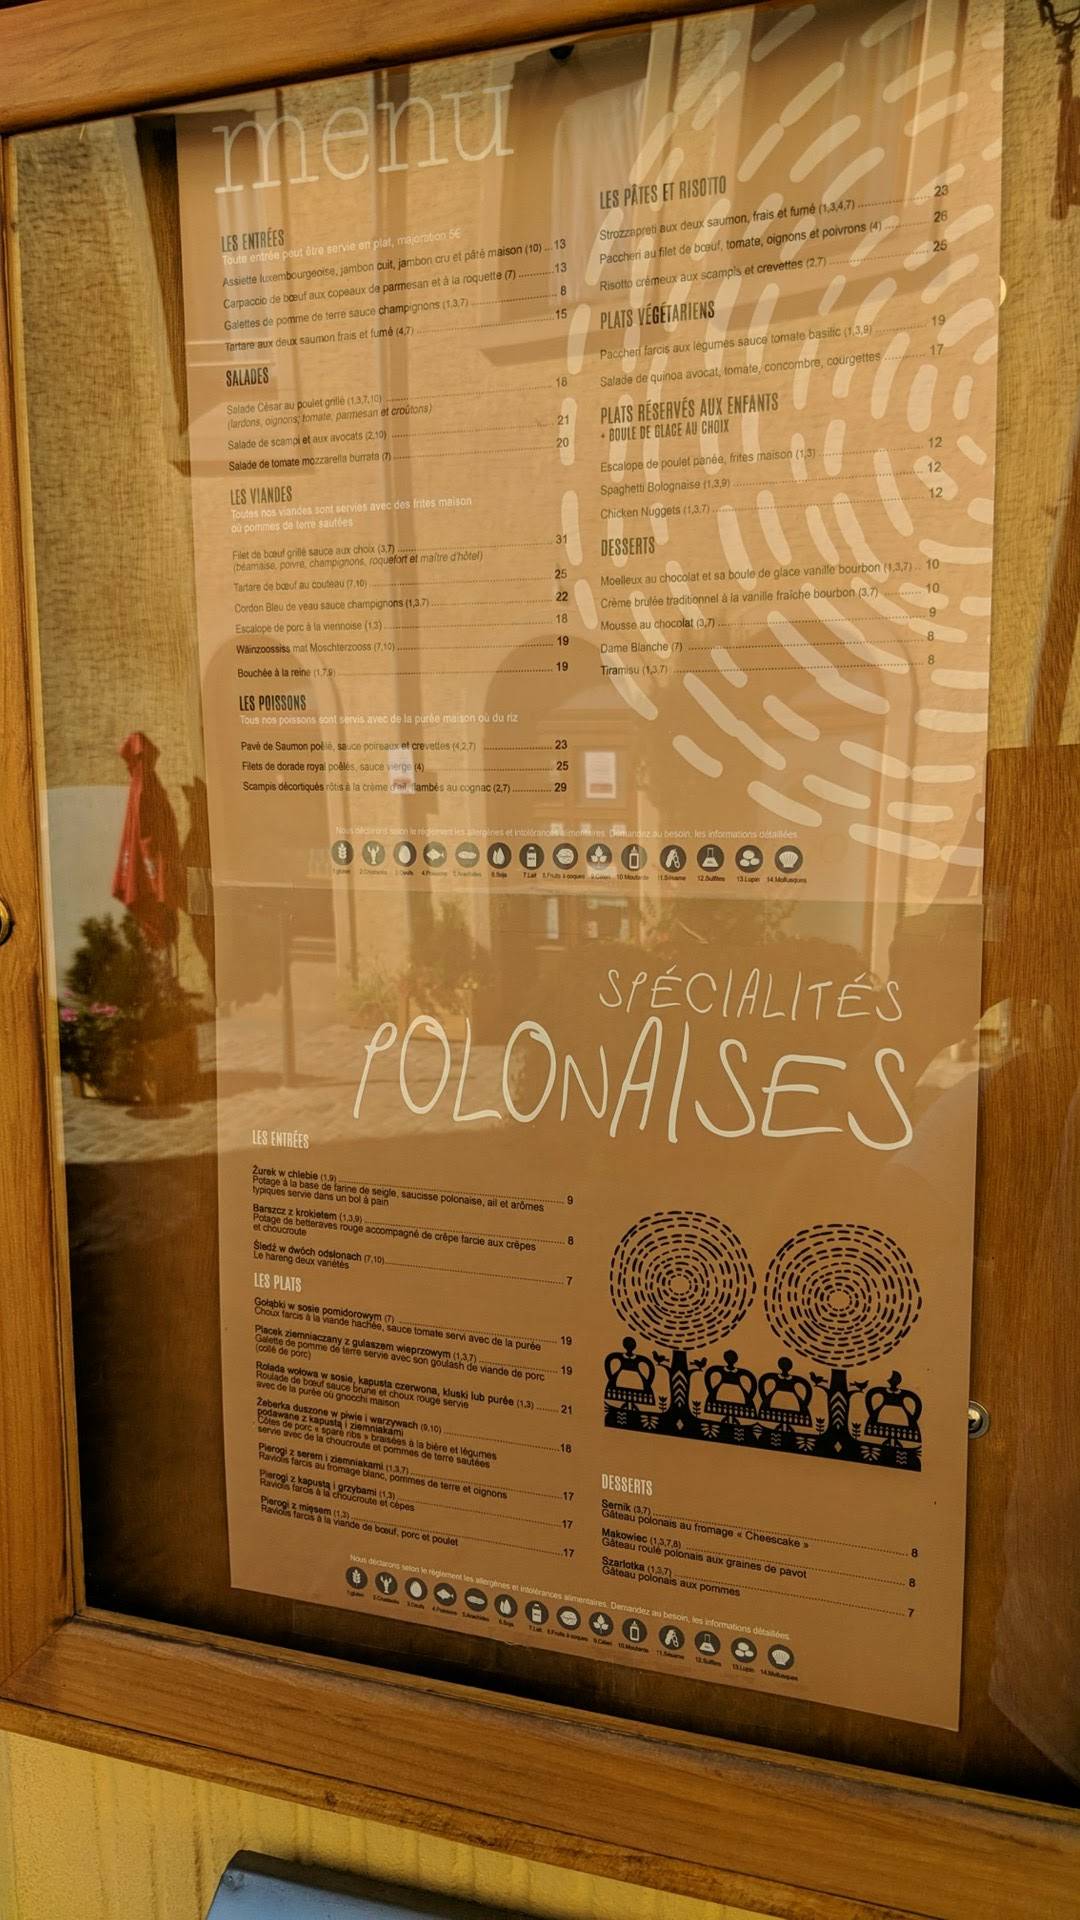 menu
LES ENTRÉES
Toute entrée peut être servie en plat, majoration 5€
Assiette luxembourgeoise, jambon cuit, jambon cru et pâté maison (10) ... 13
Carpaccio de bœuf aux copeaux de parmesan et à la roquette (7) ............ 13
Galettes de pomme de terre sauce champignons (1,3,7) ............ 8
Tartare aux deux saumon frais et fumé (4,7) ............ 15
SALADES
Salade César au poulet grillé (1,3,7,10) ............ 18
(lardons, oignons, tomate, parmesan et croûtons)
Salade de scampi et aux avocats (2,10) ............ 21
Salade de tomate mozzarella burrata (7) ............ 20
LES VIANDES
Toutes nos viandes sont servies avec des frites maison
où pommes de terre sautées
Filet de bœuf grillé sauce aux choix (3,7) ............ 31
(béarnaise, poivre, champignons, roquefort et maître d'hôtel)
Tartare de bœuf au couteau (7,10) ............ 25
Cordon Bleu de veau sauce champignons (1,3,7) ............ 22
Escalope de porc à la viennoise (1,3) ............ 18
Wäinzoossiss mat Moschterzooss (7,10) ............ 19
Bouchée à la reine (1,7,9) ............ 19
LES POISSONS
Tous nos poissons sont servis avec de la purée maison où du riz
Pavé de Saumon poêlé, sauce poireaux et crevettes (4,2,7) ............ 23
Filets de dorade royal poêlés, sauce vierge (4) ............ 25
Scampis décortiqués rôtis à la crème d'ail, flambés au cognac (2,7) ............ 29
LES PÂTES ET RISOTTO
Strozzapreti aux deux saumon, frais et fumé (1,3,4,7) ............ 23
Paccheri au filet de bœuf, tomate, oignons et poivrons (4) ............ 26
Risotto crémeux aux scampis et crevettes (2,7) ............ 25
PLATS VÉGÉTARIENS
Paccheri farcis aux légumes sauce tomate basilic (1,3,9) ............ 19
Salade de quinoa avocat, tomate, concombre, courgettes ............ 17
PLATS RÉSERVÉS AUX ENFANTS
+ BOULE DE GLACE AU CHOIX
Escalope de poulet panée, frites maison (1,3) ............ 12
Spaghetti Bolognaise (1,3,9) ............ 12
Chicken Nuggets (1,3,7) ............ 12
DESSERTS
Moelleux au chocolat et sa boule de glace vanille bourbon (1,3,7) .. 10
Crème brulée traditionnel à la vanille fraîche bourbon (3,7) ............ 10
Mousse au chocolat (3,7) ............ 9
Dame Blanche (7) ............ 8
Tiramisu (1,3,7) ............ 8
Nous déclarons selon le règlement les allergènes et intolérances alimentaires. Demandez au besoin, les informations détaillées
1.gluten 4.Poissons 5.Arachides 6.Soja 7.Lait 8.Fruits à coques 9.Céleri 10.Moutarde 11.Sésame 12.Sulfites 13.Lupin 14.Mollusques
SPÉCIALITÉS
POLONAISES
LES ENTRÉES
Żurek w chlebie (1,9) ............ 9
Potage à la base de farine de seigle, saucisse polonaise, ail et arômes
typiques servie dans un bol à pain
Barszcz z krokietem (1,3,9) ............ 8
Potage de betteraves rouge accompagné de crêpe farcie aux crêpes
et choucroute
Śledź w dwóch odsłonach (7,10) ............ 7
Le hareng deux variétés
LES PLATS
Gołąbki w sosie pomidorowym (7) ............ 19
Choux farcis à la viande hachée, sauce tomate servi avec de la purée
Placek ziemniaczany z gulaszem wieprzowym (1,3,7) ............ 19
Galette de pomme de terre servie avec son goulash de viande de porc
(collé de porc)
Rolada wołowa w sosie, kapusta czerwona, kluski lub purée (1,3) ............ 21
Roulade de bœuf sauce brune et choux rouge servie
avec de la purée où gnocchi maison
Żeberka duszone w piwie i warzywach (9,10) ............ 18
podawane z kapustą i ziemniakami
Côtes de porc « spare ribs » braisées à la bière et légumes
servie avec de la choucroute et pommes de terre sautées
Pierogi z serem i ziemniakami (1,3,7) ............ 17
Raviolis farcis au fromage blanc, pommes de terre et oignons
Pierogi z kapustą i grzybami (1,3) ............ 17
Raviolis farcis à la choucroute et cèpes
Pierogi z mięsem (1,3) ............ 17
Raviolis farcis à la viande de bœuf, porc et poulet
DESSERTS
Sernik (3,7) ............ 8
Gâteau polonais au fromage « Cheescake »
Makowiec (1,3,7,8) ............ 8
Gâteau roulé polonais aux graines de pavot
Szarlotka (1,3,7) ............ 7
Gâteau polonais aux pommes
Nous déclarons selon le règlement les allergènes et intolérances alimentaires. Demandez au besoin, les informations détaillées.
1.gluten 4.Poissons 5.Arachides 6.Soja 7.Lait 8.Fruits à coques 9.Céleri 10.Moutarde 11.Sésame 12.Sulfites 13.Lupin 14.Mollusques